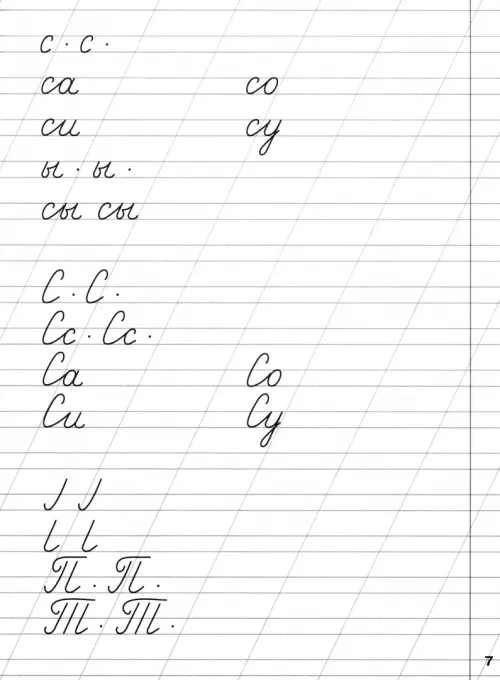 с · с ·
са со
си су
ы · ы ·
сы сы
С · С ·
Сс · Сс ·
Са Со
Си Су
П · П ·
Т · Т ·
7